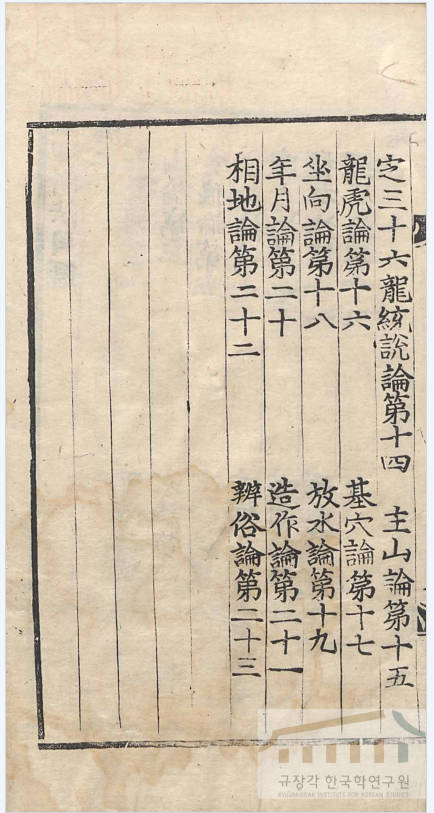 定三十六龍統說論第十四　主山論第十五
龍虎論第十六　基穴論第十七
坐向論第十八　放水論第十九
年月論第二十　造作論第二十一
相地論第二十二　辨俗論第二十三
규장각 한국학연구원
KYUJANGGAK INSTITUTE FOR KOREAN STUDIES